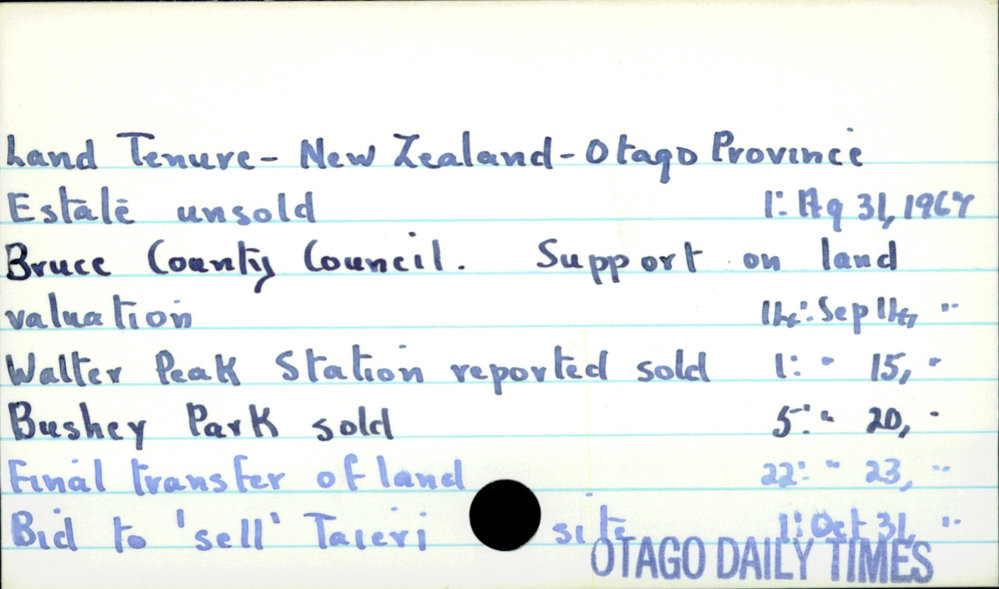 Land Tenure - New Zealand - Otago Province
Estate unsold 1: Ag 31, 1967
Bruce County Council. Support on land
valuation 14: Sep 14, "
Walter Peak Station reported sold 1: " 15, "
Bushey Park sold 5: " 20, "
Final transfer of land 22: " 23, "
Bid to 'sell' Taieri site 1: Oct 31, "
OTAGO DAILY TIMES